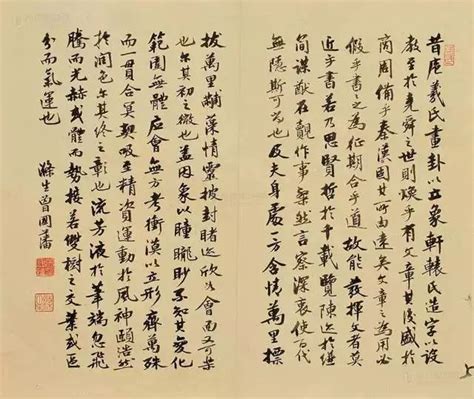 昔庖羲氏畫卦以立象軒轅氏造字以設
教至於堯舜之世則煥乎有文章其後盛於
商周備乎秦漢固其所由遠矣文章之為用必
假乎書書之為徵期合乎道故能發揮文者莫
近乎書若乃思賢哲於千載覽陳迹於縑
簡謀猷在覿作事粲然言察深衷使百代
無隱斯可尚也及夫身處一方含情萬里標
拔萬里黼藻情靈披封睹迹欣以會面又可樂
也尔其初之微也盖因象以瞳朧眇不知其變化
範圍無體應會無方考衝漠以立形齊萬殊
而一貫合冥契吸至精資運動於風神頤浩然
於潤色尔其終之彰也流芳液於筆端忽飛
騰而光赫或體而勢接若雙樹之交葉或區
分而氣運也
滌生曾國藩